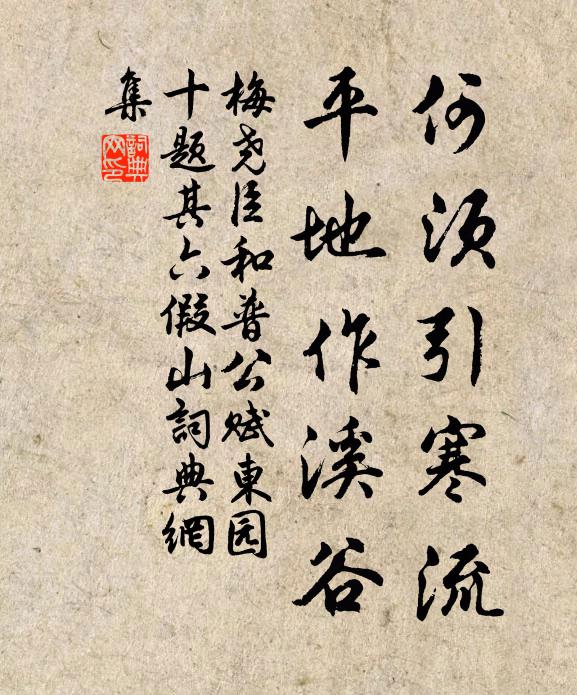 何须引寒流
平地作溪谷
梅尧臣和普公赋東园
十题其六假山詞典網
集
詞典網印